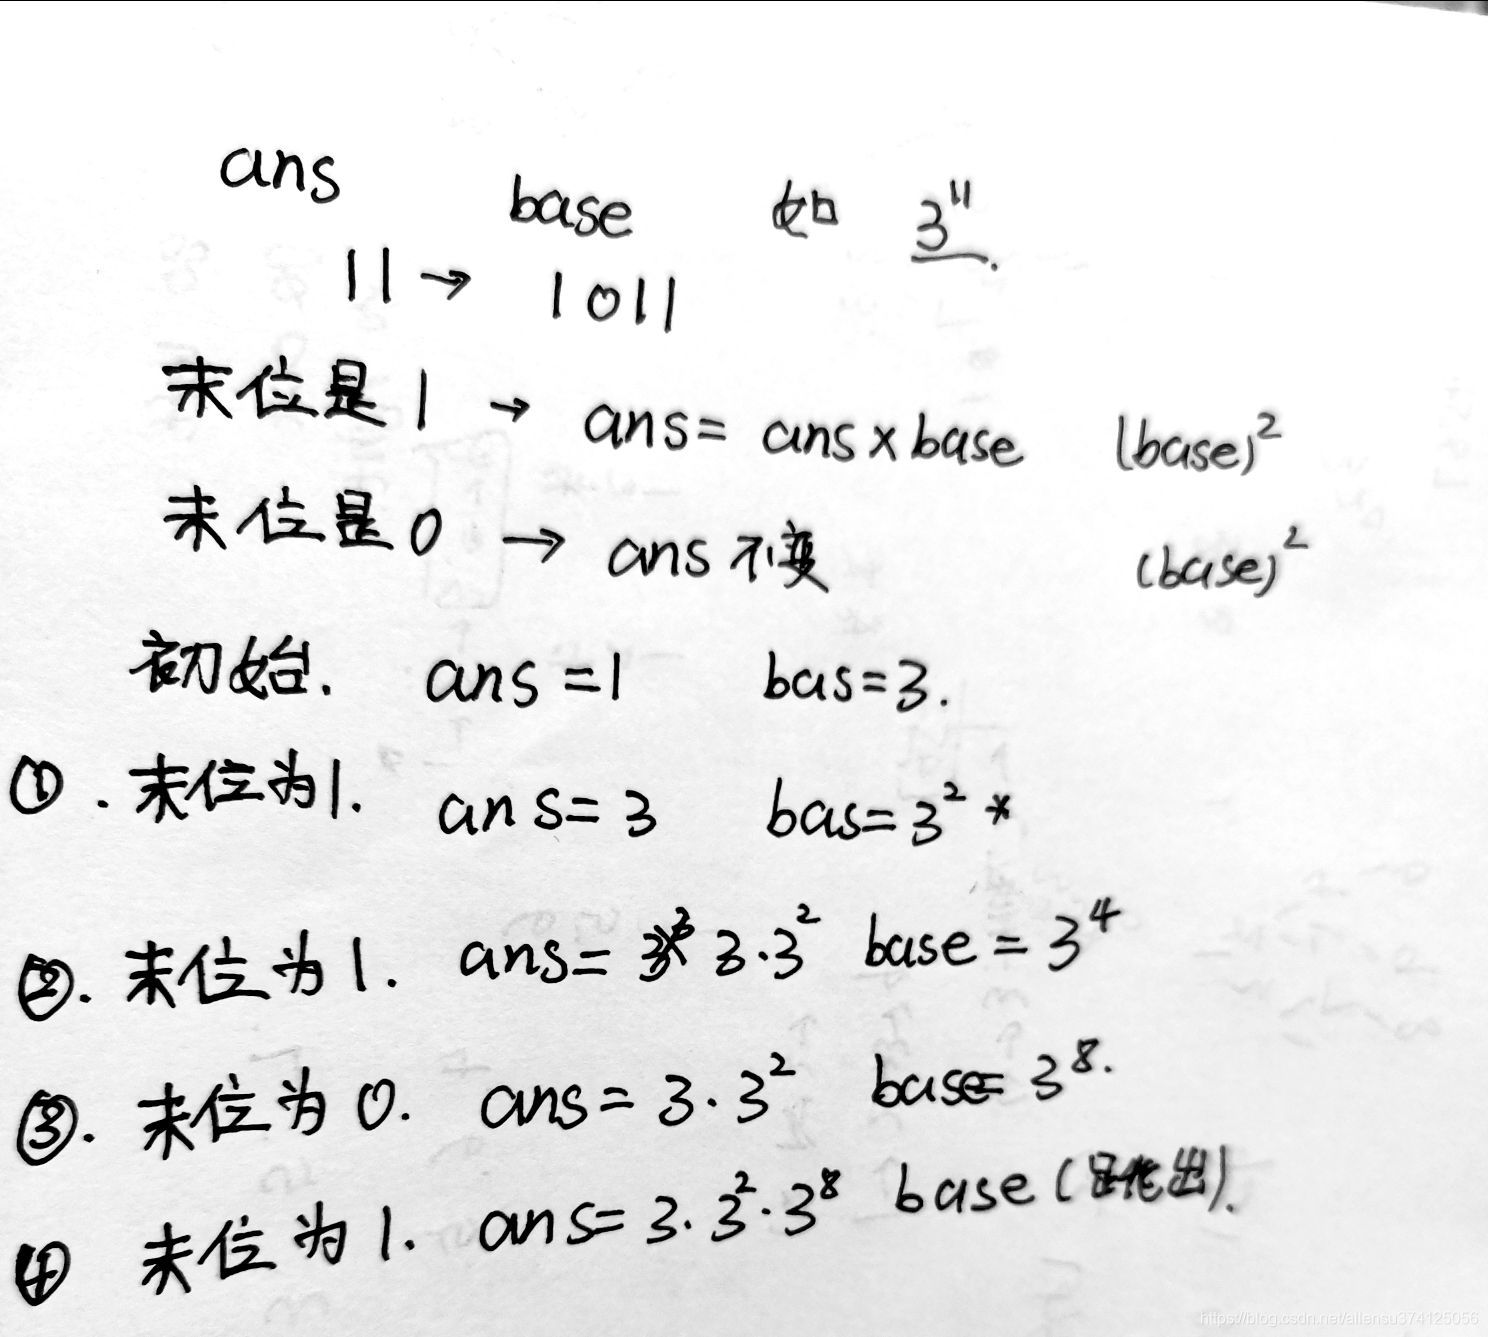 ans base 如 3^11.
11 → 1011
末位是1 → ans = ans × base (base)^2
末位是0 → ans 不变 (base)^2
初始. ans = 1 bas = 3.
①. 末位为1. ans = 3 bas = 3^2 *
②. 末位为1. ans = 3·3^2 base = 3^4
③. 末位为0. ans = 3·3^2 base = 3^8.
④ 末位为1. ans = 3·3^2·3^8 base (出).
https://blog.csdn.net/allensu374125056